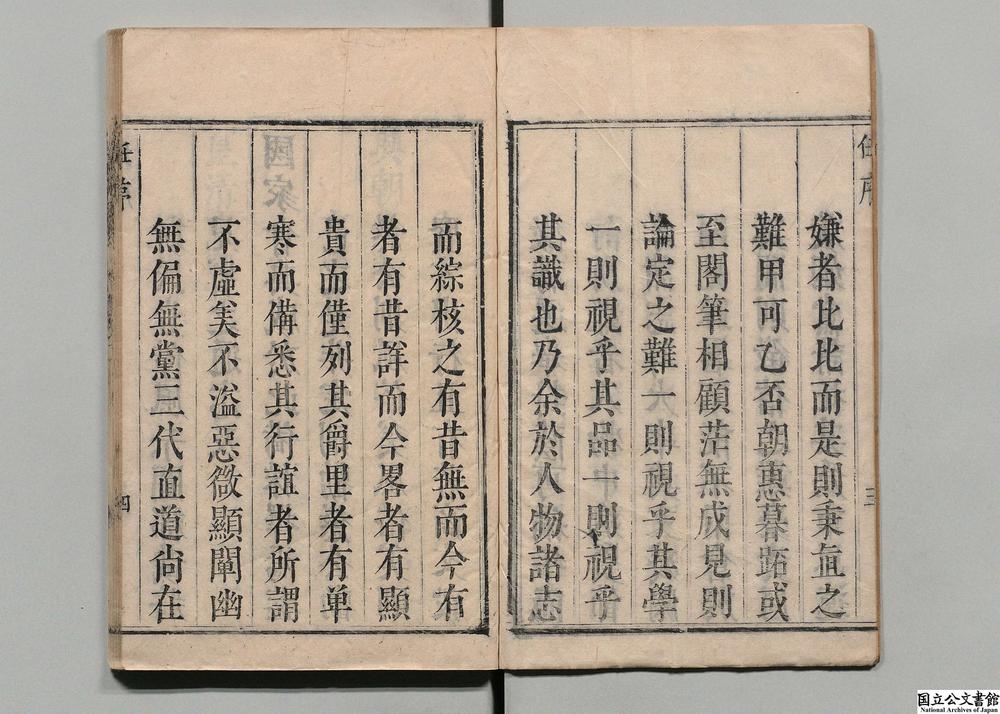 任序
嫌者比比而是則秉直之
難甲可乙否朝惠暮跖或
至閣筆相顧茫無成見則
論定之難一則視乎其學
一則視乎其品一則視乎
其識也乃余於人物諸志
三
而綜核之有昔無而今有
者有昔詳而今畧者有顯
貴而僅列其爵里者有单
寒而備悉其行誼者所謂
不虛美不溢惡微顯闡幽
無偏無黨三代直道尙在
任序
四
国立公文書館
National Archives of Japan